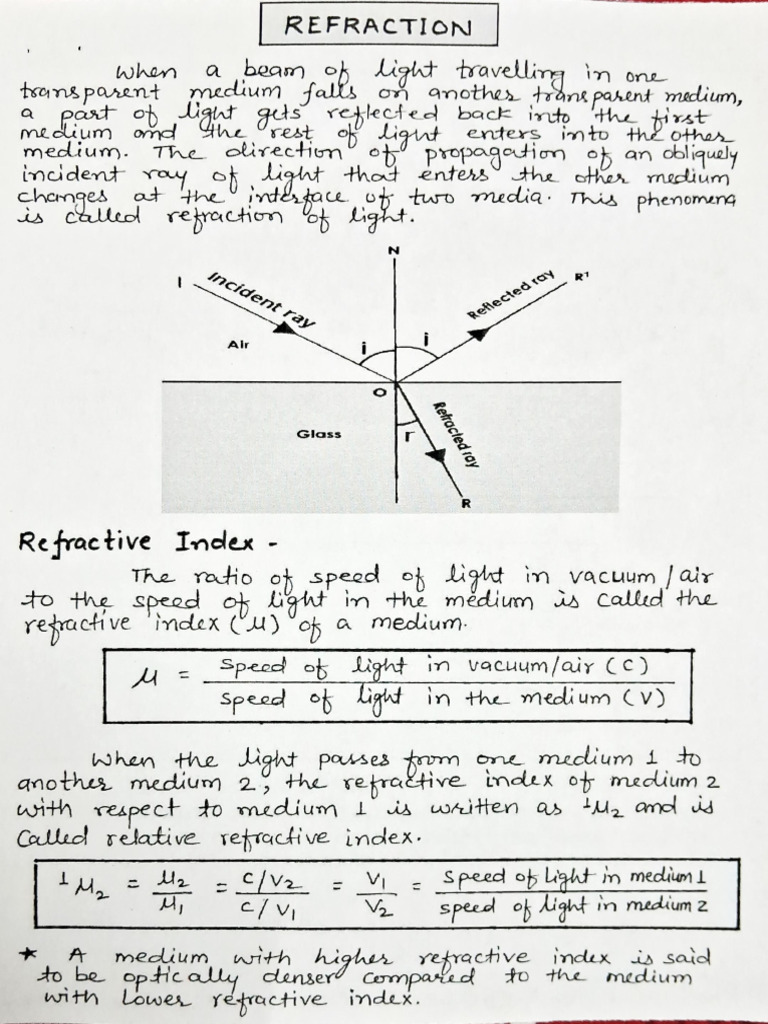 REFRACTION
When a beam of light travelling in one
transparent medium falls on another transparent medium,
a part of light gets reflected back into the first
medium and the rest of light enters into the other
medium. The direction of propagation of an obliquely
incident ray of light that enters the other medium
changes at the interface of two media. This phenomena
is called refraction of light.
N
I
Incident ray
Reflected ray
R'
Air
i
i
O
Glass
r
Refracted ray
R
Refractive Index -
The ratio of speed of light in vacuum/air
to the speed of light in the medium is called the
refractive index (μ) of a medium.
μ = speed of light in vacuum/air (C) / speed of light in the medium (V)
When the light passes from one medium 1 to
another medium 2, the refractive index of medium 2
with respect to medium 1 is written as ¹μ₂ and is
Called relative refractive index.
¹μ₂ = μ₂/μ₁ = C/V₂ / C/V₁ = V₁/V₂ = speed of light in medium 1 / speed of light in medium 2
* A medium with higher refractive index is said
to be optically denser compared to the medium
with Lower refractive index.